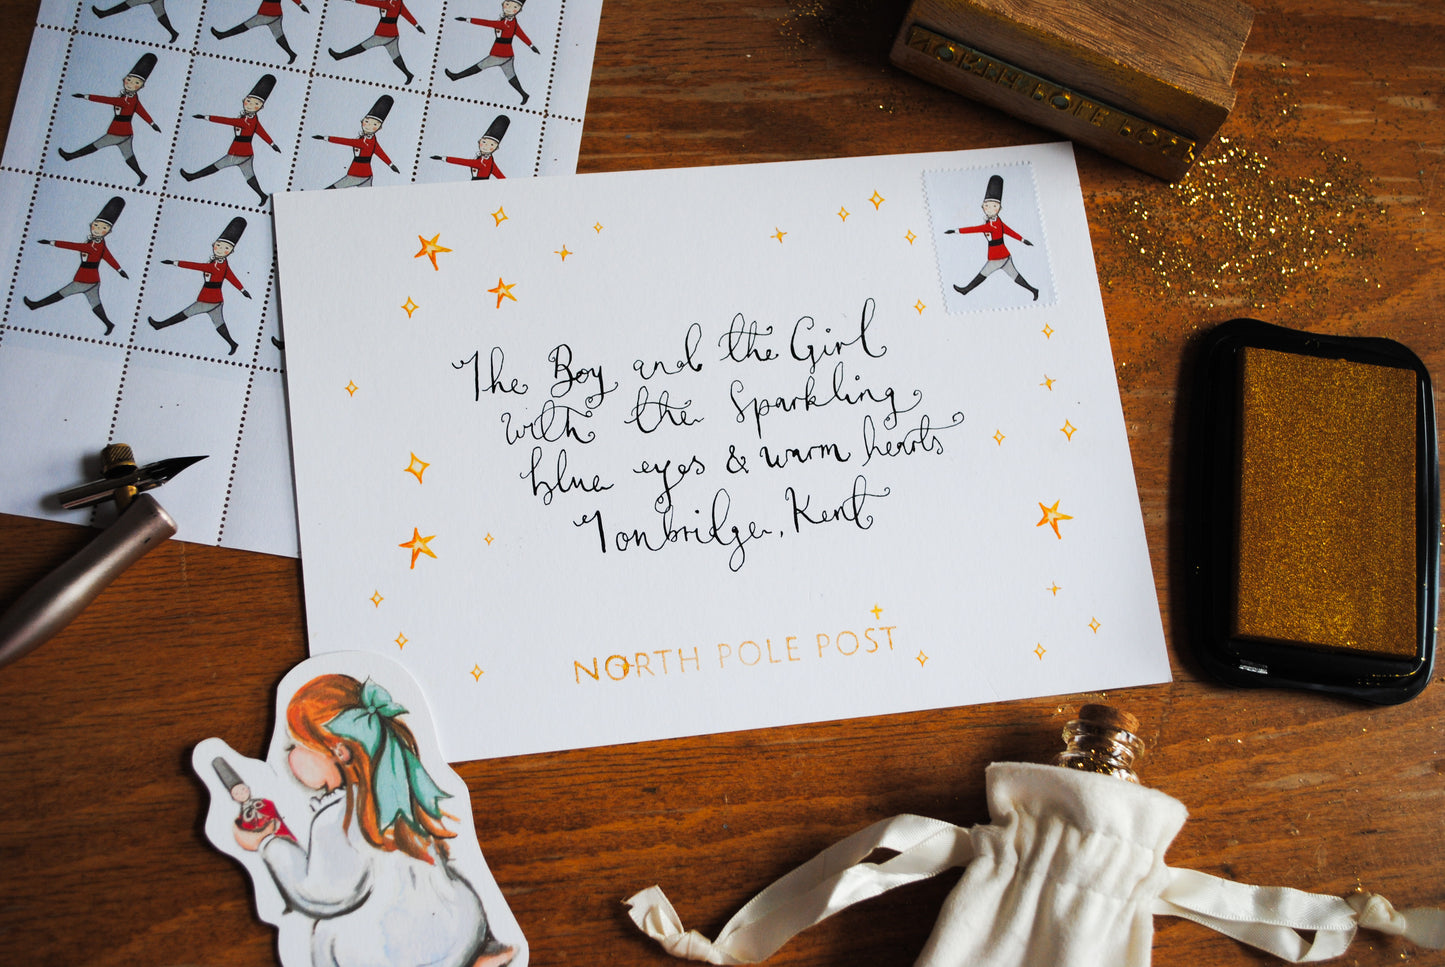 The Boy and the Girl
with the Sparkling
blue eyes & warm hearts
Tonbridge, Kent
NORTH POLE POST
NORTH POLE POST